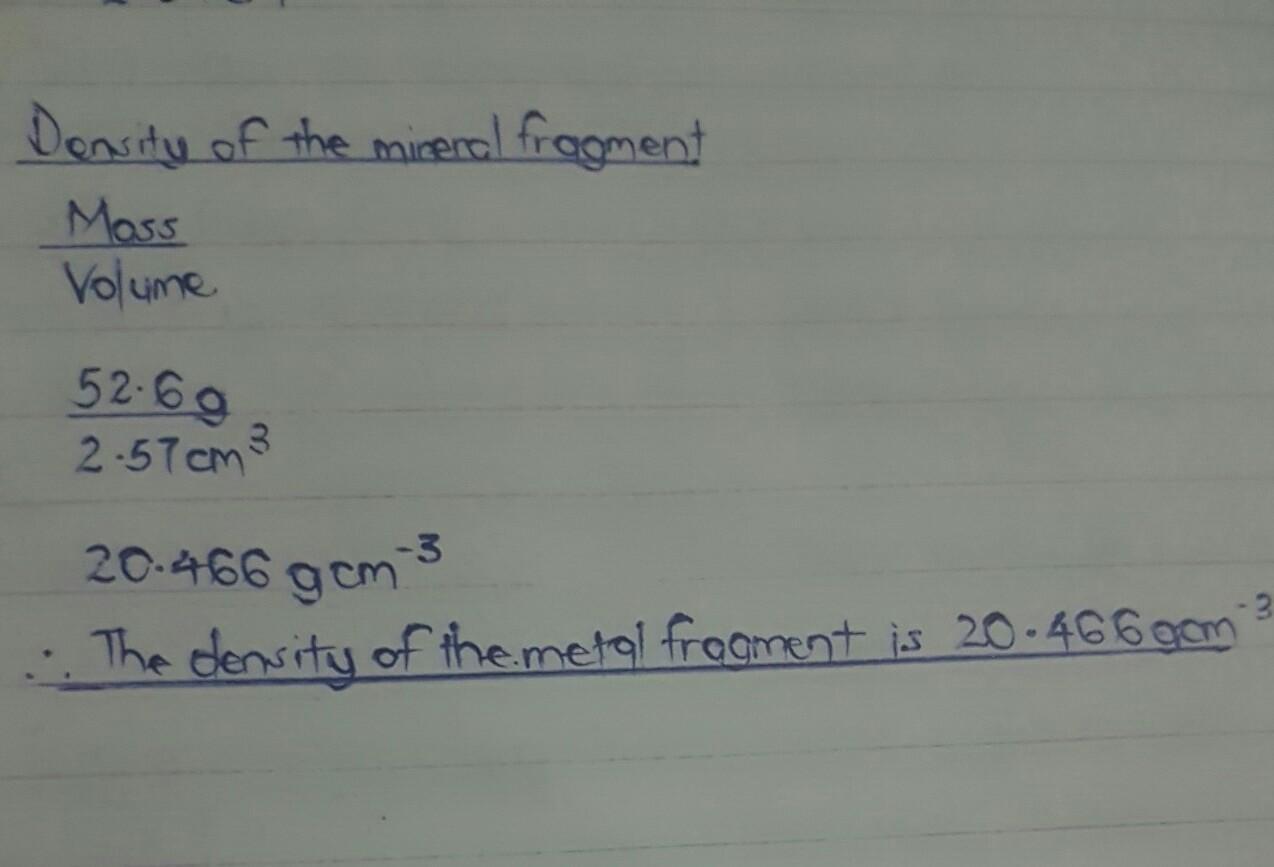 Density of the mineral fragment
Mass
Volume
52.6g
2.57cm³
20.466 gcm⁻³
∴ The density of the metal fragment is 20.466gcm⁻³